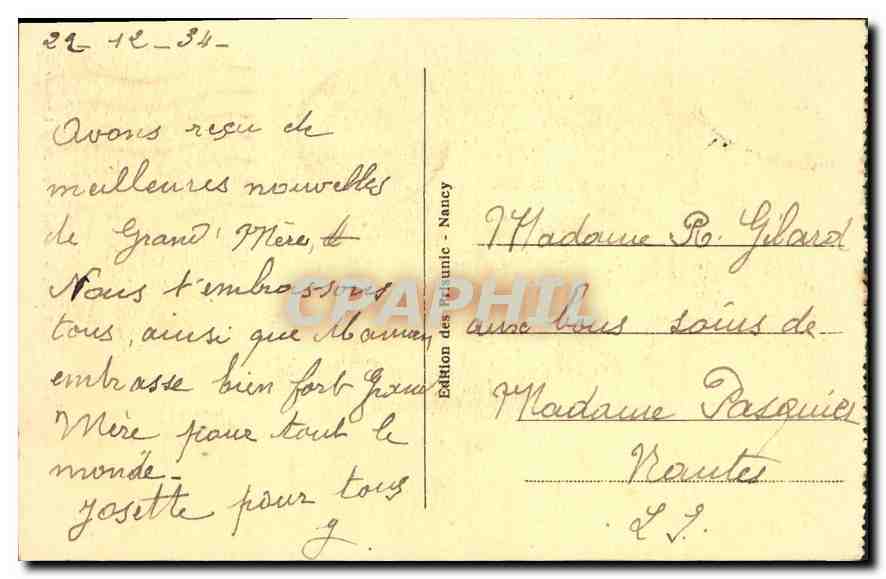 22-12-34-
Avons reçu de
meilleures nouvelles
de Grand' Mère,
Nous t'embrassons
tous, ainsi que Maman,
embrasse bien fort Grand
Mère pour tout le
monde-
Josette pour tous
g.
Edition des Prisunic - Nancy
Madame R. Gilard
aux bons soins de
Madame Pasquier
Nantes
L I.
CPAPHIL